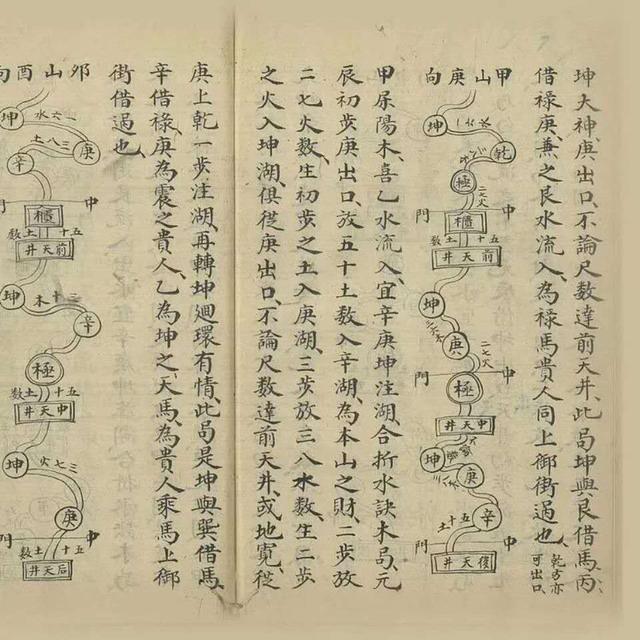 坤大神庚出口、不論尺数達前天井、此局坤與艮借馬、丙
借禄庚、兼之艮水流入、為禄馬貴人同上御街過也、
乾方亦
可出口
甲山庚向
坤
乾
極
二七火
中
門
櫃
五十土数
前天井
坤
庚
二七火
中
門
極
中天井
坤
庚
辛
五十土
中
門
後天井
甲屎陽木、喜乙水流入、宜辛庚坤注湖、合折水訣木局、元
辰初步庚出口、放五十土数入辛湖、為本山之財、二步放
二七火数、生初步之土入庚湖、三步放三八水数、生二步
之火入坤湖、俱從庚出口、不論尺数達前天井、或地寬、從
庚上乾一步注湖、再轉坤廻環有情、此局是坤與巽借馬、
辛借禄、庚為震之貴人、乙為坤之、天馬、為貴人乘馬上御
街借過也、
夘山酉向
坤
一六水
三八土
庚
辛
中
門
櫃
五十土数
前天井
坤
三十木
辛
極
五十土数
中天井
坤
三七火
庚
中
門
五十土数
后天井